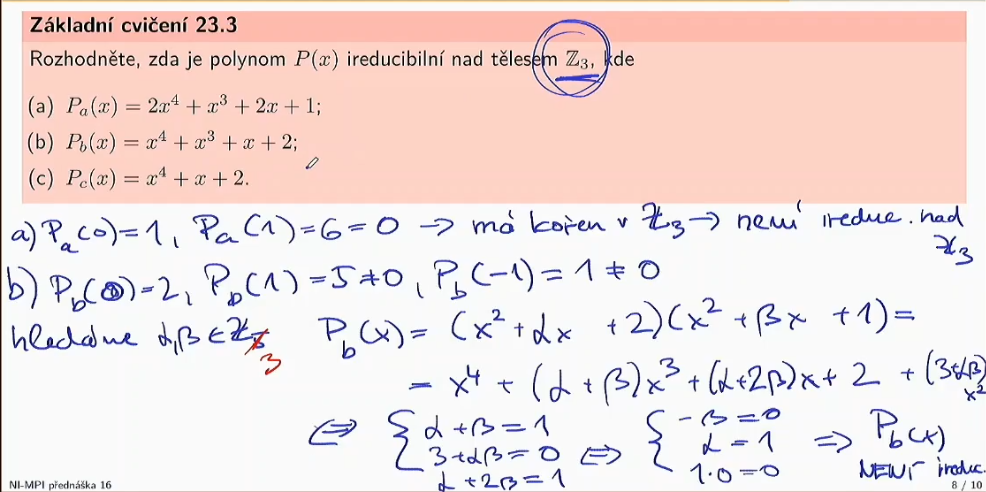 Základní cvičení 23.3
Rozhodněte, zda je polynom P(x) ireducibilní nad tělesem ℤ₃, kde
(a) Pₐ(x) = 2x⁴ + x³ + 2x + 1;
(b) P_b(x) = x⁴ + x³ + x + 2;
(c) P_c(x) = x⁴ + x + 2.
a) Pₐ(0)=1, Pₐ(1)=6=0 → má kořen v ℤ₃ → není ireduc. nad ℤ₃
b) P_b(0)=2, P_b(1)=5≠0, P_b(-1)=1≠0
hledáme α,β∈ℤ₃ P_b(x) = (x²+αx+2)(x²+βx+1)=
= x⁴+(α+β)x³+(α+2β)x+2 +(3+αβ)x²
⇔ { α+β=1 ⇔ { -β=0 ⇒ P_b(x)
3+αβ=0 α=1 NENÍ ireduc.
α+2β=1 1·0=0
NI-MPI přednáška 16 8 / 10